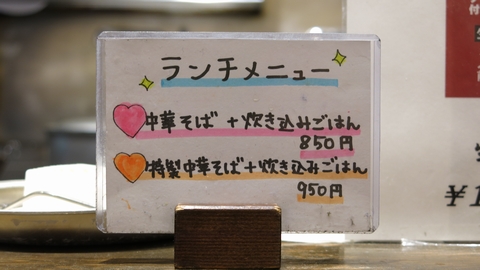 ランチメニュー
中華そば + 炊き込みごはん
850円
特製中華そば+炊き込みごはん
950円
付
¥1